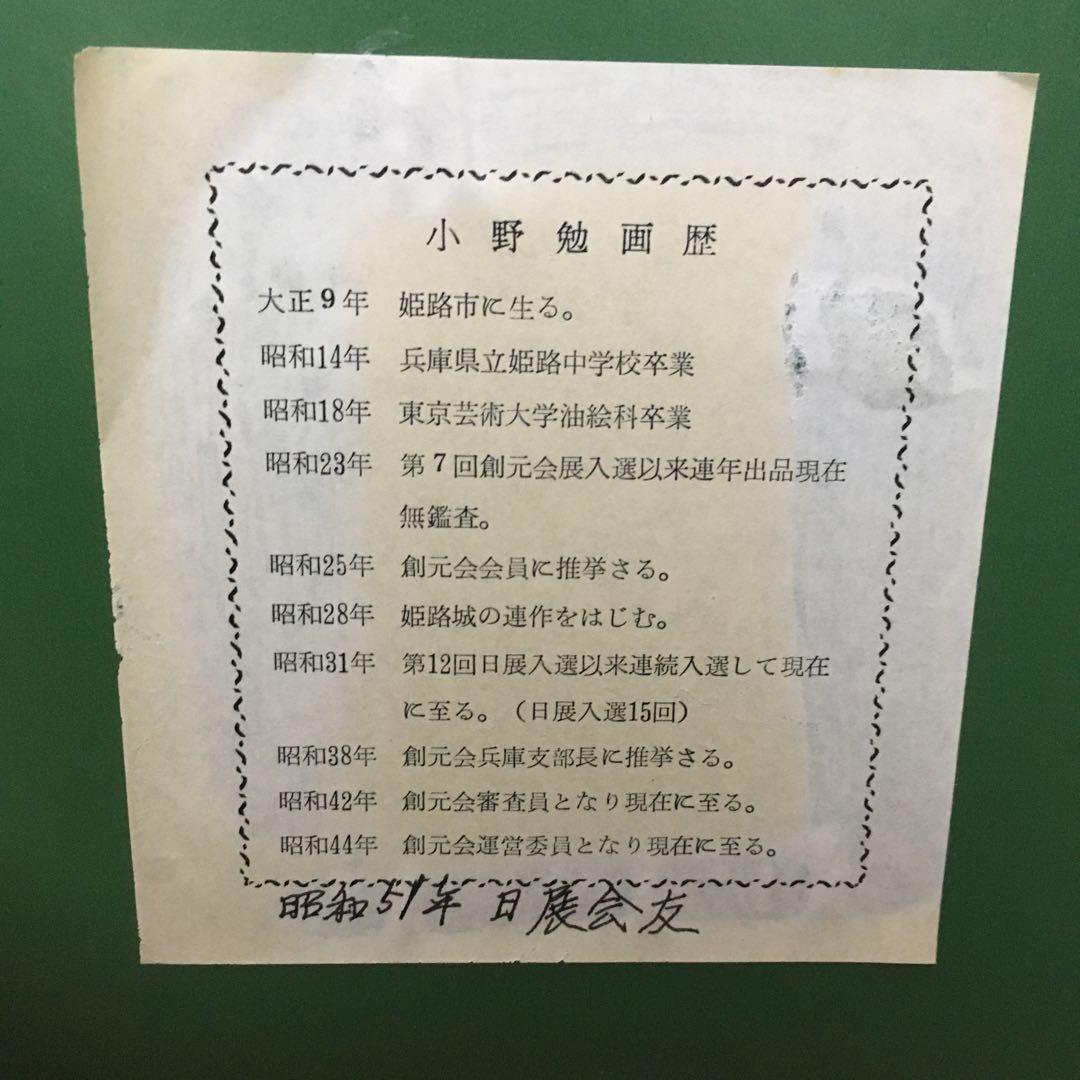 小野勉画歴
大正9年 姫路市に生る。
昭和14年 兵庫県立姫路中学校卒業
昭和18年 東京芸術大学油絵科卒業
昭和23年 第7回創元会展入選以来連年出品現在
無鑑査。
昭和25年 創元会会員に推挙さる。
昭和28年 姫路城の連作をはじむ。
昭和31年 第12回日展入選以来連続入選して現在
に至る。（日展入選15回）
昭和38年 創元会兵庫支部長に推挙さる。
昭和42年 創元会審査員となり現在に至る。
昭和44年 創元会運営委員となり現在に至る。
昭和51年 日展会友